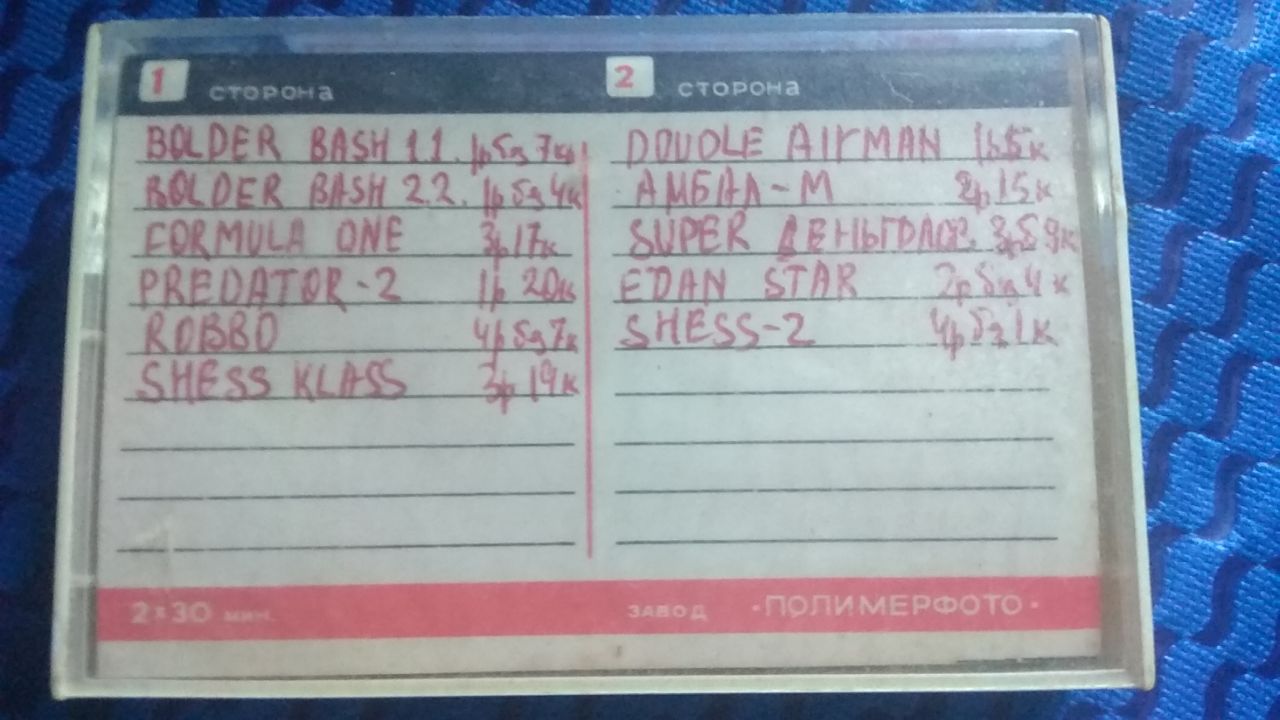 1 сторона
BOLDER BASH 1.1. 1р 5я 7к
BOLDER BASH 2.2. 1р 5я 4к
FORMULA ONE 3р 17к
PREDATOR-2 1р 20к
ROBBO 4р 5я 7к
SHESS KLASS 3р 19к
2 сторона
DOUDLE AIRMAN
АМБАЛ-М 2р 15к
SUPER
EDAN STAR 2р 5я 4к
SHESS-2 4р 5я 1к
2×30 мин.
ЗАВОД •ПОЛИМЕРФОТО•